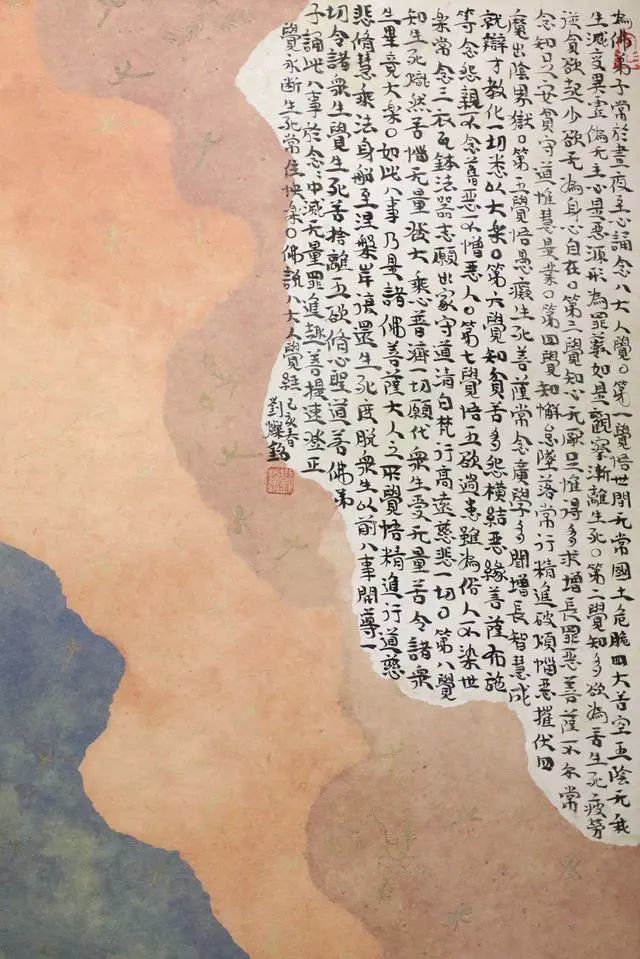 為佛弟子常於晝夜至心誦念八大人覺○第一覺悟世間无常國土危脆四大苦空五陰无我
生滅變異虛偽无主心是惡源形為罪藪如是觀察漸離生死○第二覺知多欲為苦生死疲勞
從貪欲起少欲无為身心自在○第三覺知心无厭足惟得多求增長罪惡菩薩不尒常
念知足安貧守道惟慧是業○第四覺知懈怠墜落常行精進破煩惱惡摧伏四
魔出陰界獄○第五覺悟愚癡生死菩薩常念廣學多聞增長智慧成
就辯才教化一切悉以大樂○第六覺知貧苦多怨橫結惡緣菩薩布施
等念怨親不念舊惡不憎惡人○第七覺悟五欲過患雖為俗人不染世
樂常念三衣瓦鉢法器志願出家守道清白梵行高遠慈悲一切○第八覺
知生死熾然苦惱无量發大乘心普濟一切願代衆生受无量苦令諸衆
生畢竟大樂○如此八事乃是諸佛菩薩大人之所覺悟精進行道慈
悲脩慧乘法身船至涅槃岸復還生死度脫衆生以前八事開導一
切令諸衆生覺生死苦捨離五欲脩心聖道若佛弟
子誦此八事於念念中滅无量罪進趣菩提速登正
覺永断生死常住快樂○佛說八大人覺經 己亥春
劉燦銘